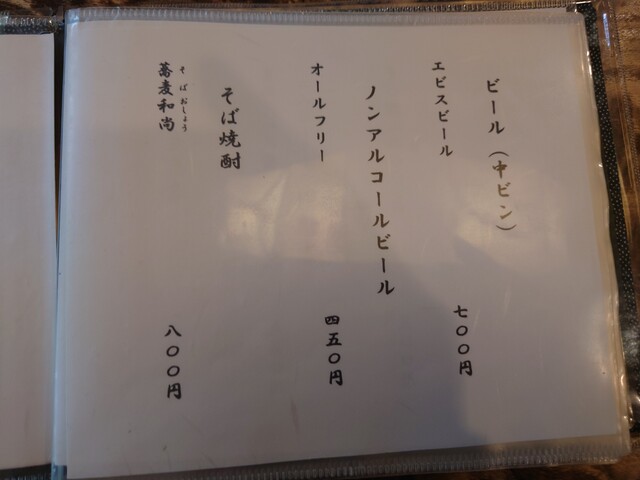 ビール（中ビン）
エビスビール
七〇〇円
ノンアルコールビール
オールフリー
四五〇円
そば焼酎
蕎麦和尚
そばおしょう
八〇〇円